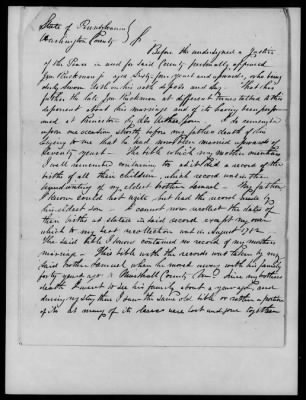 State of Pennsylvania }
Washington County } ss
Before the undersigned a Justice
of the Peace in and for said County personally appeared
Jas. Ruckman Jr aged Sixty four years and upwards, who being
duly sworn doth on his oath depose and say - That his
father the late Jas Ruckman at different times talked to this
deponent about his marriage and of its having been perform
ed at Princeton by the Witherspoon. I do remember
upon one occasion shortly before my father death of his
saying to me that he had been then married upwards of
seventy years - The bible which my mother mentions
I well remember containing to it did had a record of the
births of all their children, which record was in the
handwriting of my eldest brother Samuel - My father
I know could not write but had the record made by
his eldest son I cannot now recollect the dates of
their births as stated in said record except my own
which to my best recollection was in August 1782
The said bible I know contained no record of my mothers
marriage - This bible with the records was taken by my
said brother Samuel when he moved away with his family
forty years ago to Marshall County Va Since my brothers
death I went to see his family about a year ago, and
during my stay there I saw the same old bible or rather a portion
of it as many of its leaves were lost and gone together